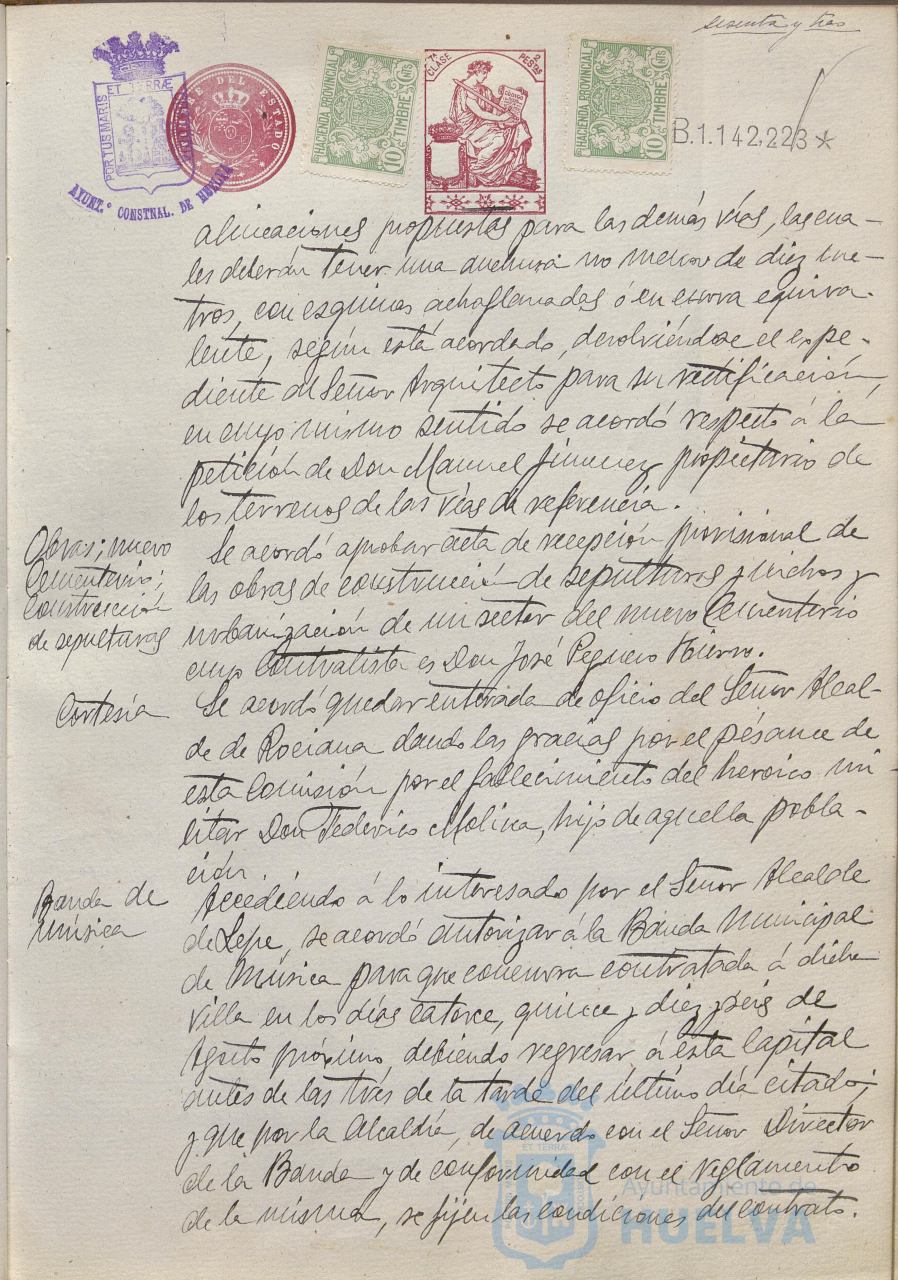 sesenta y tres
ET TERRÆ
PORTUS MARIS
AYUNT.º CONSTNAL. DE HUELVA
TIMBRE DEL ESTADO
HACENDA PROVINCIAL
TIMBRE
10 CTS
7ª CLASE
2 PESTAS
HACENDA PROVINCIAL
TIMBRE
10 CTS
B.1.142.223*
alineaciones propuestas para las demás vías, las cua-
les deberán tener una anchura no menor de diez me-
tros, con esquinas achaflanadas ó en curva equiva-
lente, según está acordado, devolviéndose el expe-
diente al Señor Arquitecto para su rectificación,
en cuyo mismo sentido se acordó respecto á la
petición de Don Manuel Jimenez, propietario de
los terrenos de las vías de referencia.
Obras; nuevo
Cementerio;
Construcción
de sepulturas
Se acordó aprobar acta de recepción provisional de
las obras de construcción de sepulturas y nichos y
urbanización de un sector del nuevo Cementerio
cuyo Contratista es Don José Peguero Hierro.
Cortesía
Se acordó quedar enterada de oficio del Señor Alcal-
de de Rociana dando las gracias por el pésame de
esta Comisión por el fallecimiento del heroico mi-
litar Don Federico Molina, hijo de aquella pobla-
ción.
Banda de
Música
Accediendo á lo interesado por el Señor Alcalde
de Lepe, se acordó autorizar á la Banda Municipal
de Música para que concurra contratada á dicha
villa en los días catorce, quince y diez y seis de
Agosto próximo, debiendo regresar á esta Capital
antes de las tres de la tarde del último día citado;
y que por la Alcaldía, de acuerdo con el Señor Director
de la Banda y de conformidad con el reglamento
de la misma, se fijen las condiciones del contrato.
ET TERRÆ
Ayuntamiento de
HUELVA